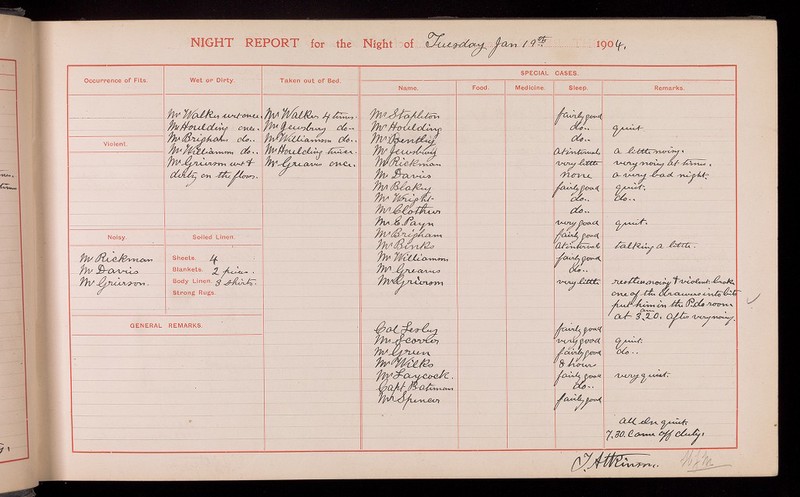 NIGHT REPORT for the Night of Tuesday Jan 19th 1904.
Occurrence of Fits. Wet or Dirty. Taken out of Bed. SPECIAL CASES.
Name. Food. Medicine. Sleep. Remarks.
Mr Walker wet once. Mr Walker 4 times.
Mr Houlding once. Mr Jewsbury do..
Mr Brigham do.. Mr Williamson do..
Mr Williamson do.. Mr Houlding twice.
Mr Grierson wet & Mr Greaves once.
dirty on the floor.
Violent.
Noisy.
Mr Rickman
Mr Davis
Mr Grierson.
Soiled Linen
Sheets. 4
Blankets. 2
Body Linen. 3 Shirts.
Strong Rugs.
GENERAL REMARKS.
Mr Stapleton fairly good
Mr Houlding do.. quiet
Mr Bentley do..
Mr Jewsbury at intervals a little noisy.
Mr Rickman very little very noisy at times.
Mr Davis none a very bad night.
Mr Blakey fairly good quiet.
Mr Wright do.. do..
Mr Clothier do..
Mr C. Payn very good quiet.
Mr Brigham fairly good
Mr Banks at intervals talking a little.
Mr Williamson fairly good
Mr Greaves do..
Mr Grierson very little restless noisy & violent broke
one of the drawers into bits
put him in the Pded room
at 3.20. am after very noisy.
Col fairly good
Mr very good quiet.
Mr Green fairly good do..
Mr Wilks 8 hours
Mr Laycock. fairly good very quiet.
Capt Bateman do..
Mr Spencer fairly good
All else quiet
7.30. Came off duty.
J. Atkinson.